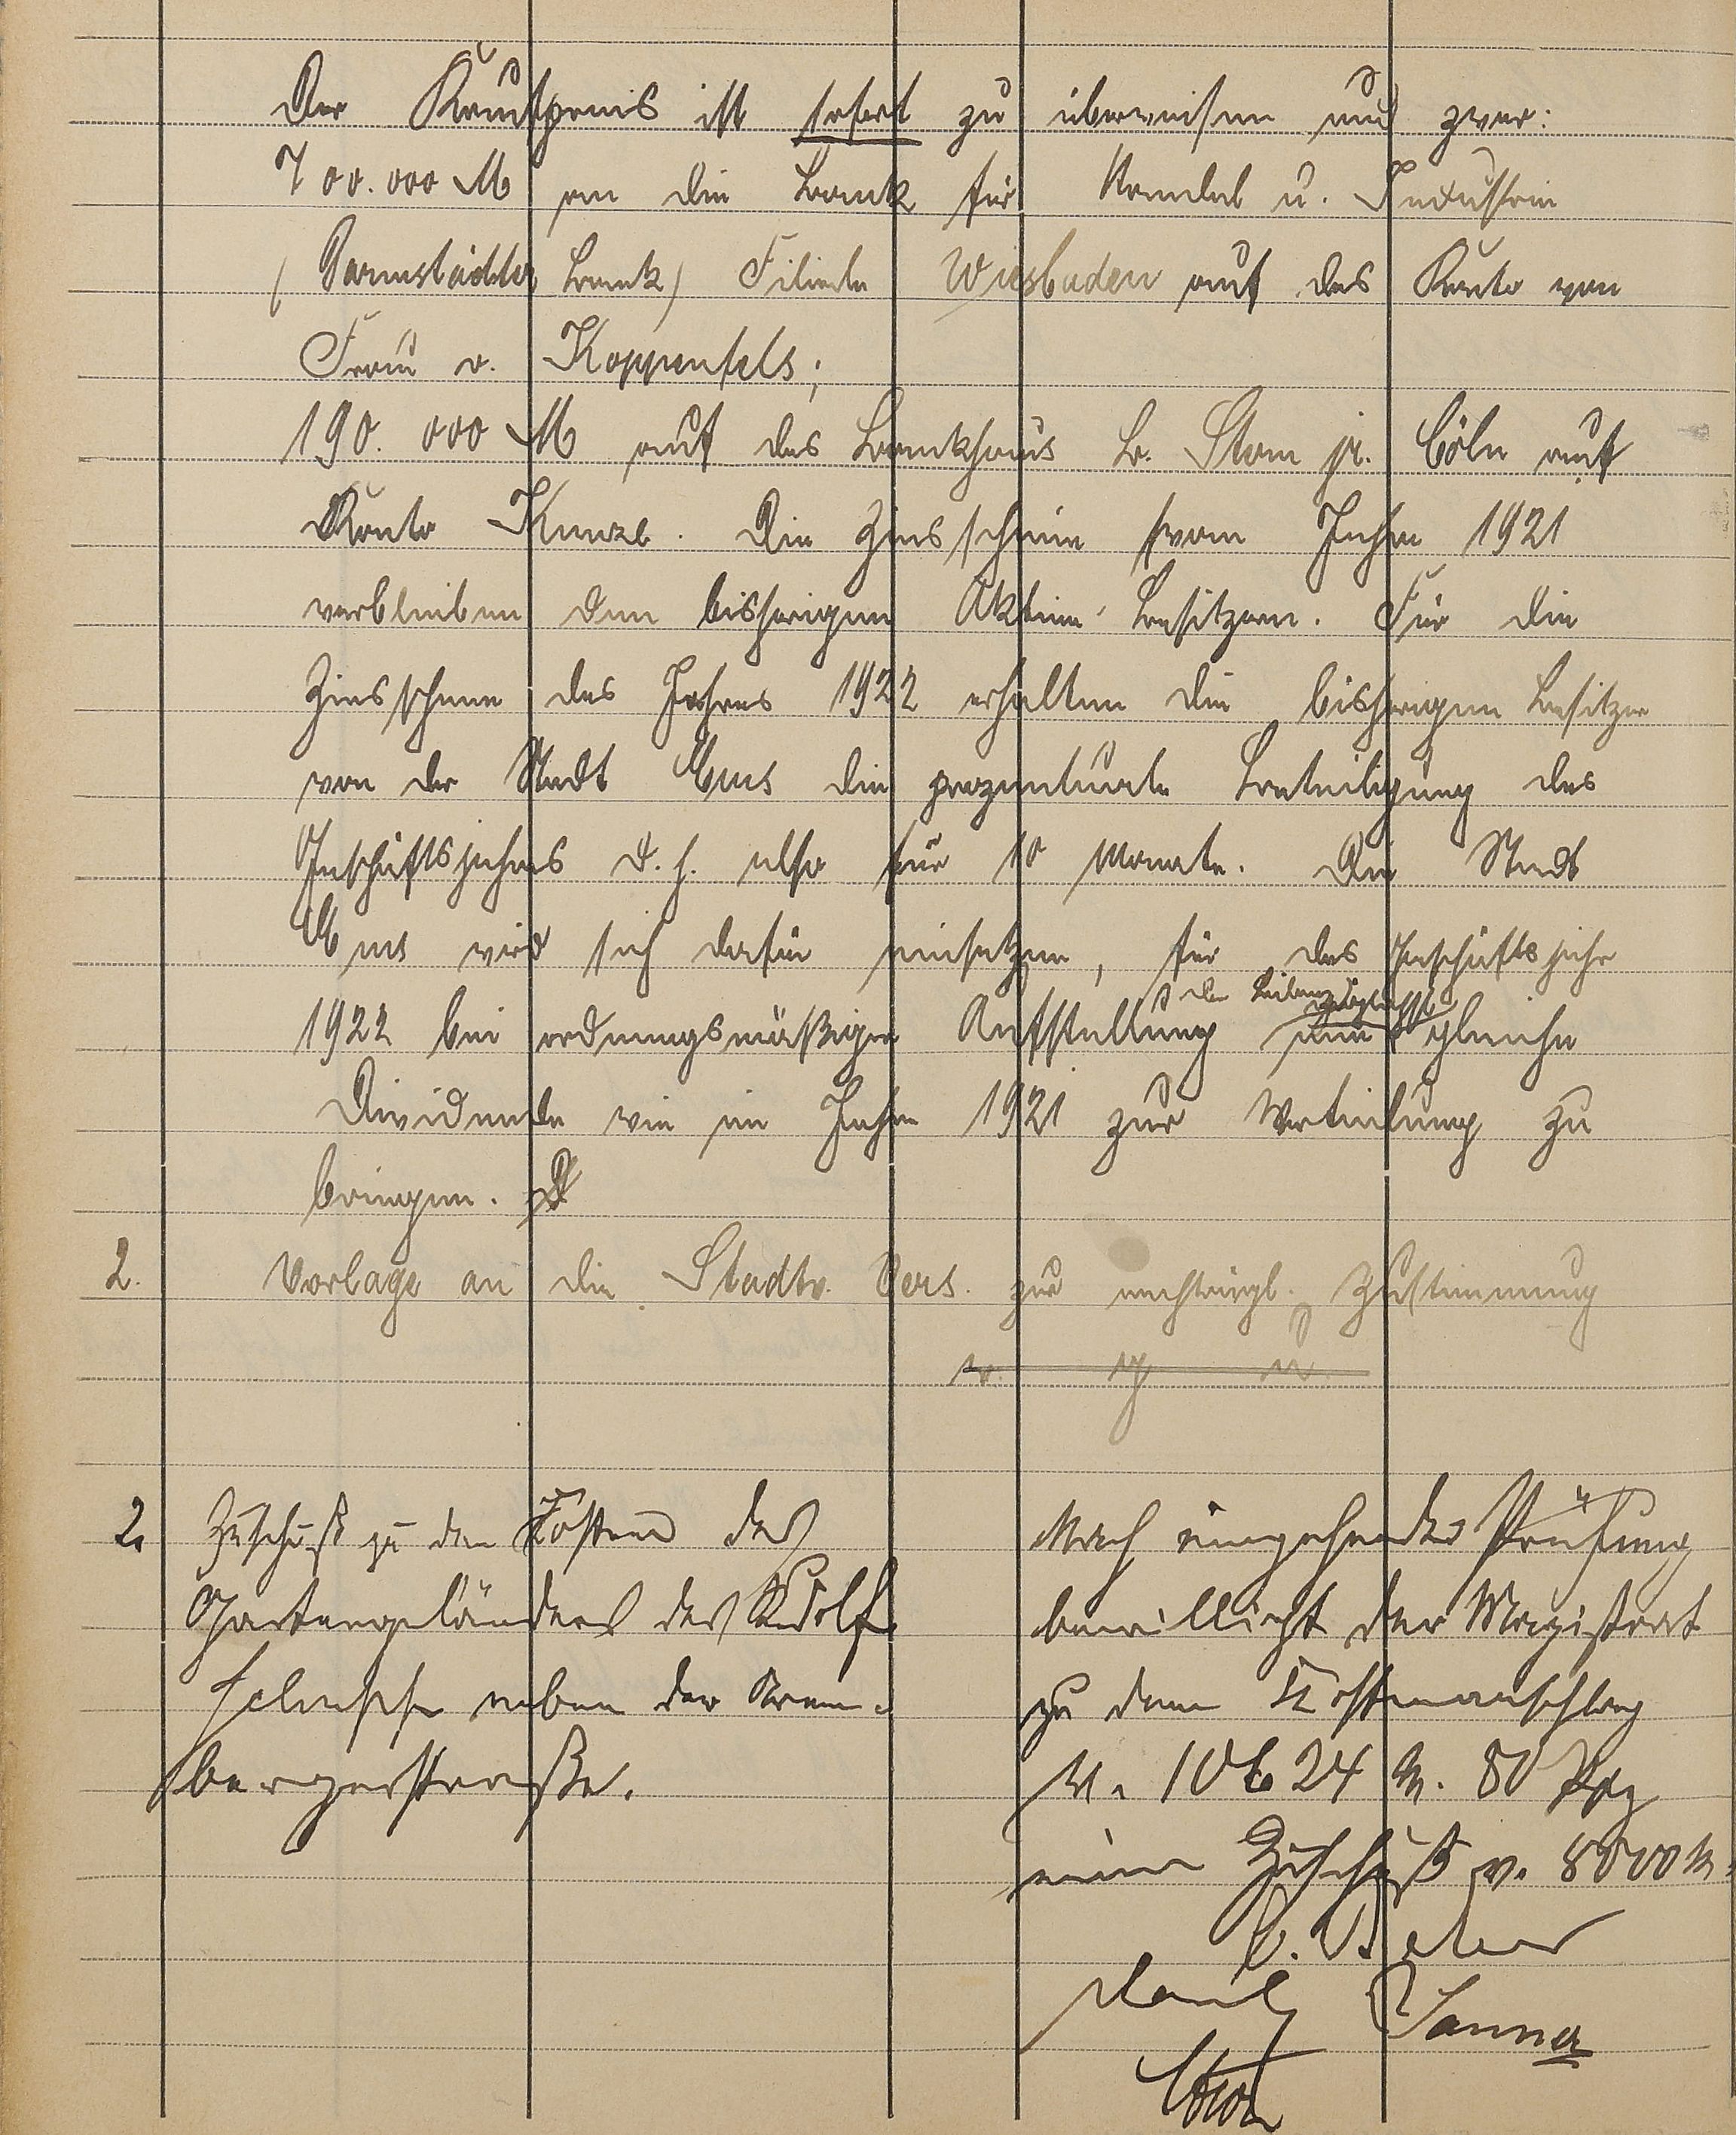 Der Kaufpreis ist sofort zu überweisen und zwar:
700.000 M an die Bank für Handel u. Industrie
(Darmstädter Bank) Filiale Wiesbaden auf das Konto von
Frau v. Koppenfels;
190.000 M auf das Bankhaus Cöln auf
Konto Die Zinsscheine vom Jahre 1921
verbleiben den bisherigen Aktien-Besitzern. Für die
Zinsscheine des Jahres 1922 erhalten die bisherigen Besitzer
von der Stadt Ems die prozentuale Beteiligung des
Geschäftsjahres d. h. also für 10 Monate. Die Stadt
Ems wird sich dafür einsetzen, für das Geschäftsjahr
der Bilanz
1922 bei ordnungsmäßiger Aufstellung gleiche
Dividende wie im Jahre 1921 zur Verteilung zu
bringen.
2. Vorlage an die Stadtv. Vers. zur nachträgl. Zustimmung
v. g. u.
2. Zuschuß zu den Kosten des
Gartengeländers des
neben der
bergerstraße.
Nach eingehender Prüfung
bewilligt der Magistrat
zu dem Kostenanschlag
v. 10624 M. 80 Pfg
einen Zuschuß v. 8000 M.